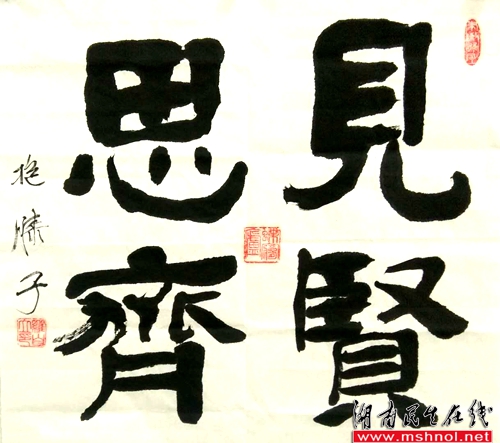 見賢
思齊
子
湖南民生在线
www.mshnol.net